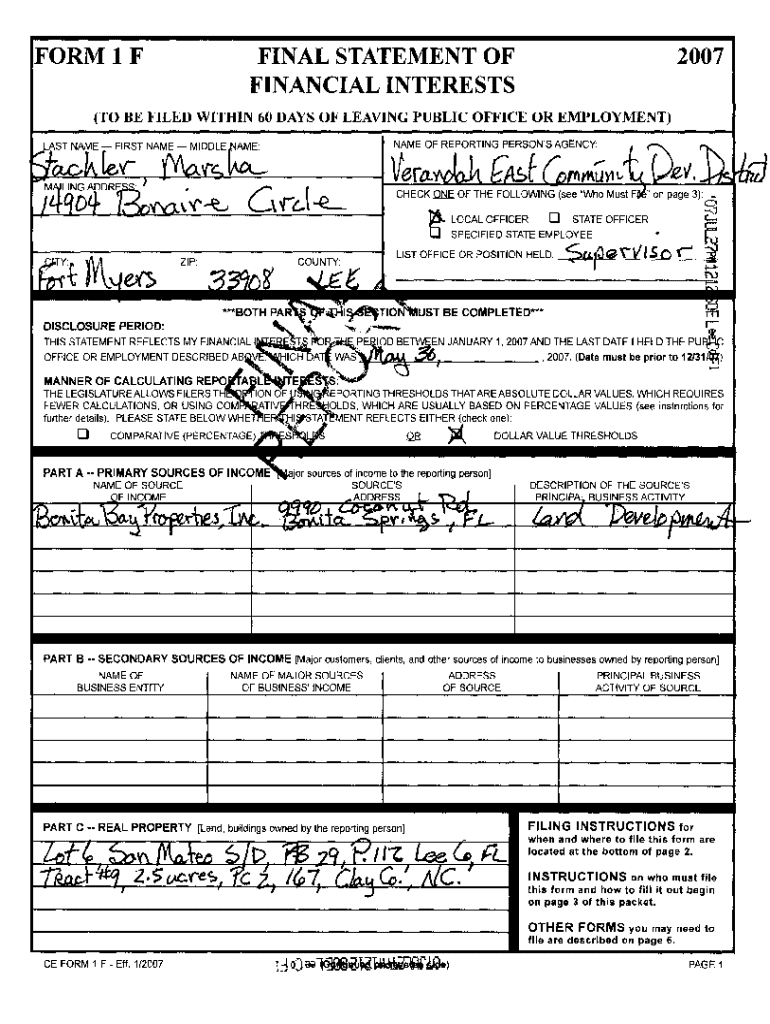 FORM 1 F FINAL STATEMENT OF 2007
FINANCIAL INTERESTS
(TO BE FILED WITHIN 60 DAYS OF LEAVING PUBLIC OFFICE OR EMPLOYMENT)
LAST NAME — FIRST NAME — MIDDLE NAME:
Stachler, Marsha
MAILING ADDRESS:
14904 Bonaire Circle
CITY: ZIP: COUNTY:
Fort Myers 33908 LEE
NAME OF REPORTING PERSON'S AGENCY:
Verandah East Community Dev. District
CHECK ONE OF THE FOLLOWING (see "Who Must File" on page 3):
LOCAL OFFICER STATE OFFICER
SPECIFIED STATE EMPLOYEE
LIST OFFICE OR POSITION HELD: Supervisor
FINAL REPORT
***BOTH PARTS OF THIS SECTION MUST BE COMPLETED***
DISCLOSURE PERIOD:
THIS STATEMENT REFLECTS MY FINANCIAL INTERESTS FOR THE PERIOD BETWEEN JANUARY 1, 2007 AND THE LAST DATE I HELD THE PUBLIC
OFFICE OR EMPLOYMENT DESCRIBED ABOVE, WHICH DATE WAS May 30, , 2007. (Date must be prior to 12/31/07)
MANNER OF CALCULATING REPORTABLE INTERESTS:
THE LEGISLATURE ALLOWS FILERS THE OPTION OF USING REPORTING THRESHOLDS THAT ARE ABSOLUTE DOLLAR VALUES, WHICH REQUIRES
FEWER CALCULATIONS, OR USING COMPARATIVE THRESHOLDS, WHICH ARE USUALLY BASED ON PERCENTAGE VALUES (see instructions for
further details). PLEASE STATE BELOW WHETHER THIS STATEMENT REFLECTS EITHER (check one):
COMPARATIVE (PERCENTAGE) THRESHOLDS OR DOLLAR VALUE THRESHOLDS
PART A -- PRIMARY SOURCES OF INCOME [Major sources of income to the reporting person]
NAME OF SOURCE SOURCE'S DESCRIPTION OF THE SOURCE'S
OF INCOME ADDRESS PRINCIPAL BUSINESS ACTIVITY
9990 Coconut Rd
Bonita Bay Properties, Inc. Bonita Springs, FL Land Development
PART B -- SECONDARY SOURCES OF INCOME [Major customers, clients, and other sources of income to businesses owned by reporting person]
NAME OF NAME OF MAJOR SOURCES ADDRESS PRINCIPAL BUSINESS
BUSINESS ENTITY OF BUSINESS' INCOME OF SOURCE ACTIVITY OF SOURCE
PART C -- REAL PROPERTY [Land, buildings owned by the reporting person]
Lot 6 San Mateo S/D, PB 29, P. 112 Lee Co, FL
Tract #9, 2.5 acres, PC 2, 167, Clay Co., NC.
FILING INSTRUCTIONS for
when and where to file this form are
located at the bottom of page 2.
INSTRUCTIONS on who must file
this form and how to fill it out begin
on page 3 of this packet.
OTHER FORMS you may need to
file are described on page 6.
CE FORM 1 F - Eff. 1/2007 PAGE 1